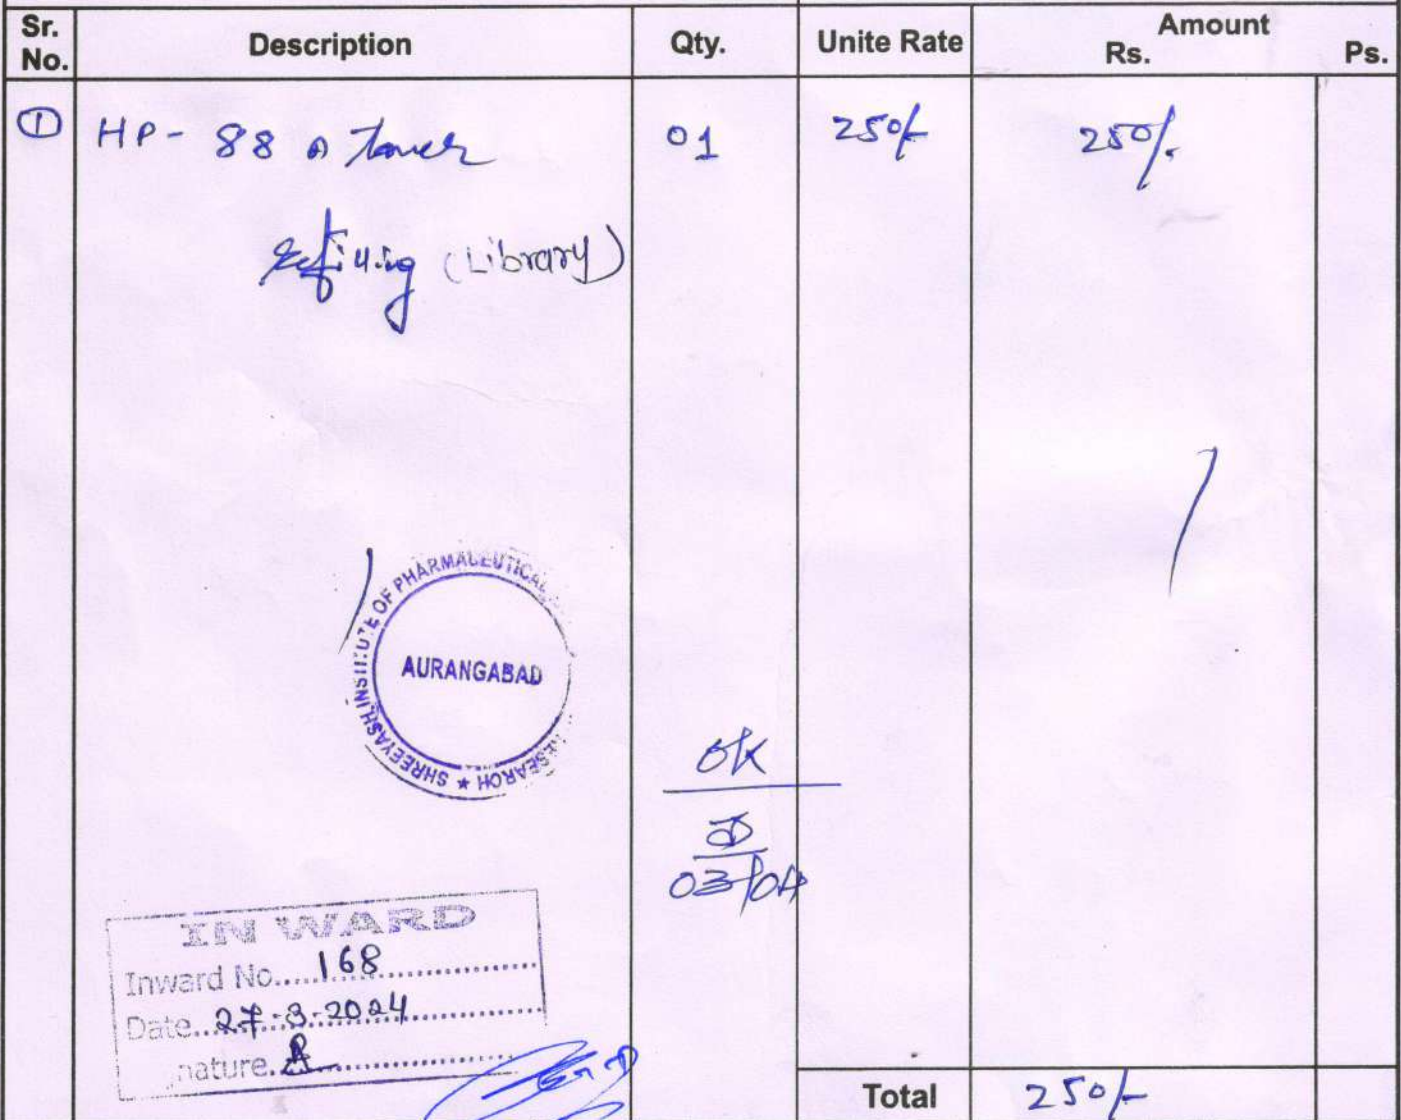 Sr. No. Description Qty. Unite Rate Amount Rs. Ps.
① HP - 88 A toner 01 250/- 250/-
refilling (Library)
SHREEYASH INSTITUTE OF PHARMACEUTICAL RESEARCH ★
AURANGABAD
ok
03/04
IN WARD
Inward No.....168
Date..27-3-2024
nature.
Total 250/-